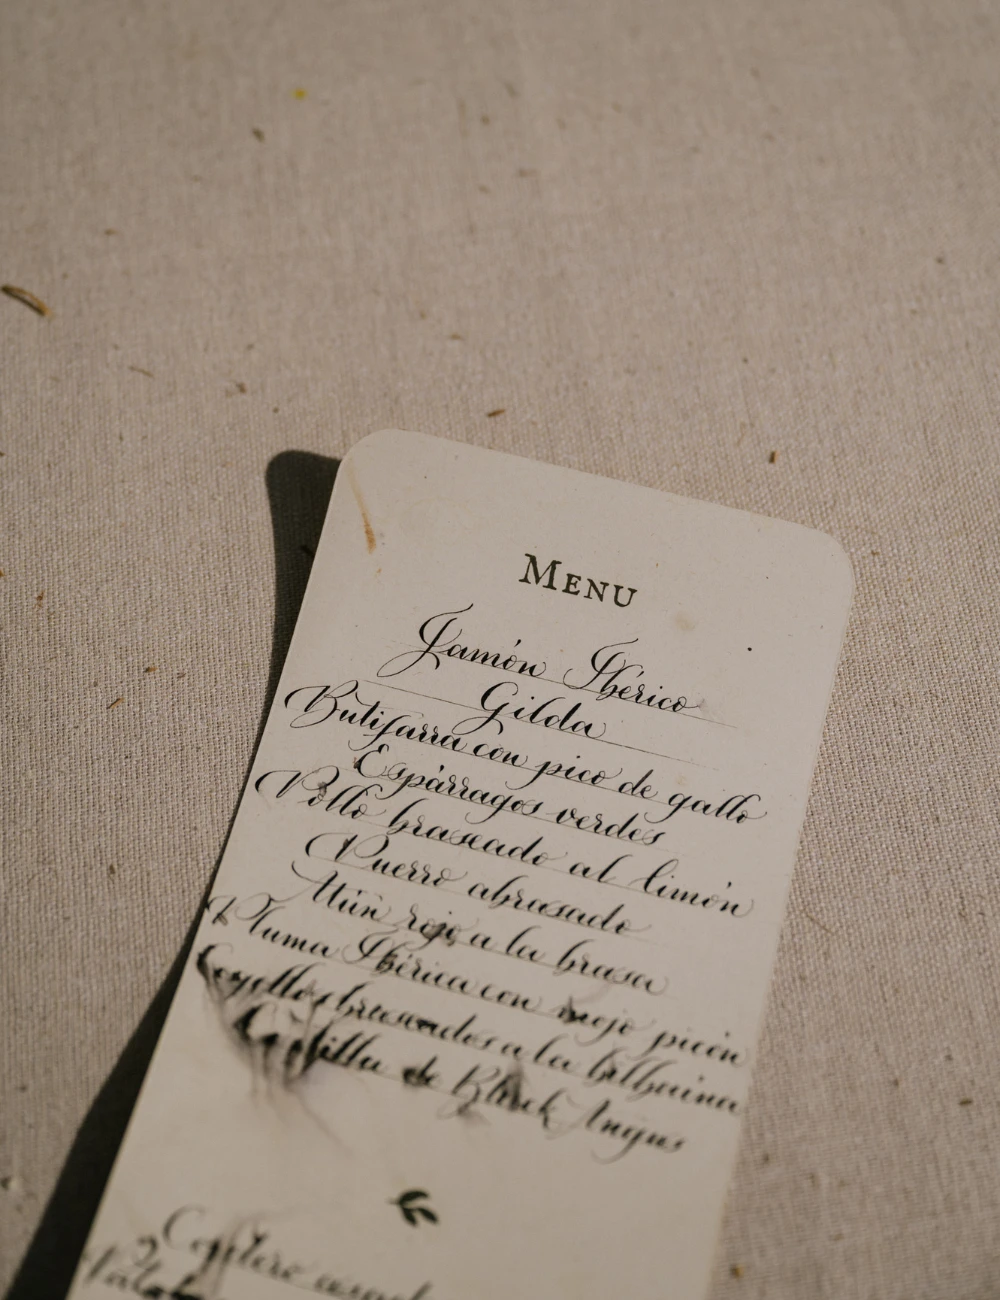 Menu
Jamón Ibérico
Gilda
Butifarra con pico de gallo
Espárragos verdes
Pollo braseado al limón
Puerro abrasado
Atún rojo a la brasa
Pluma Ibérica con mojo picón
a la bilbaina
Costilla de Black Angus